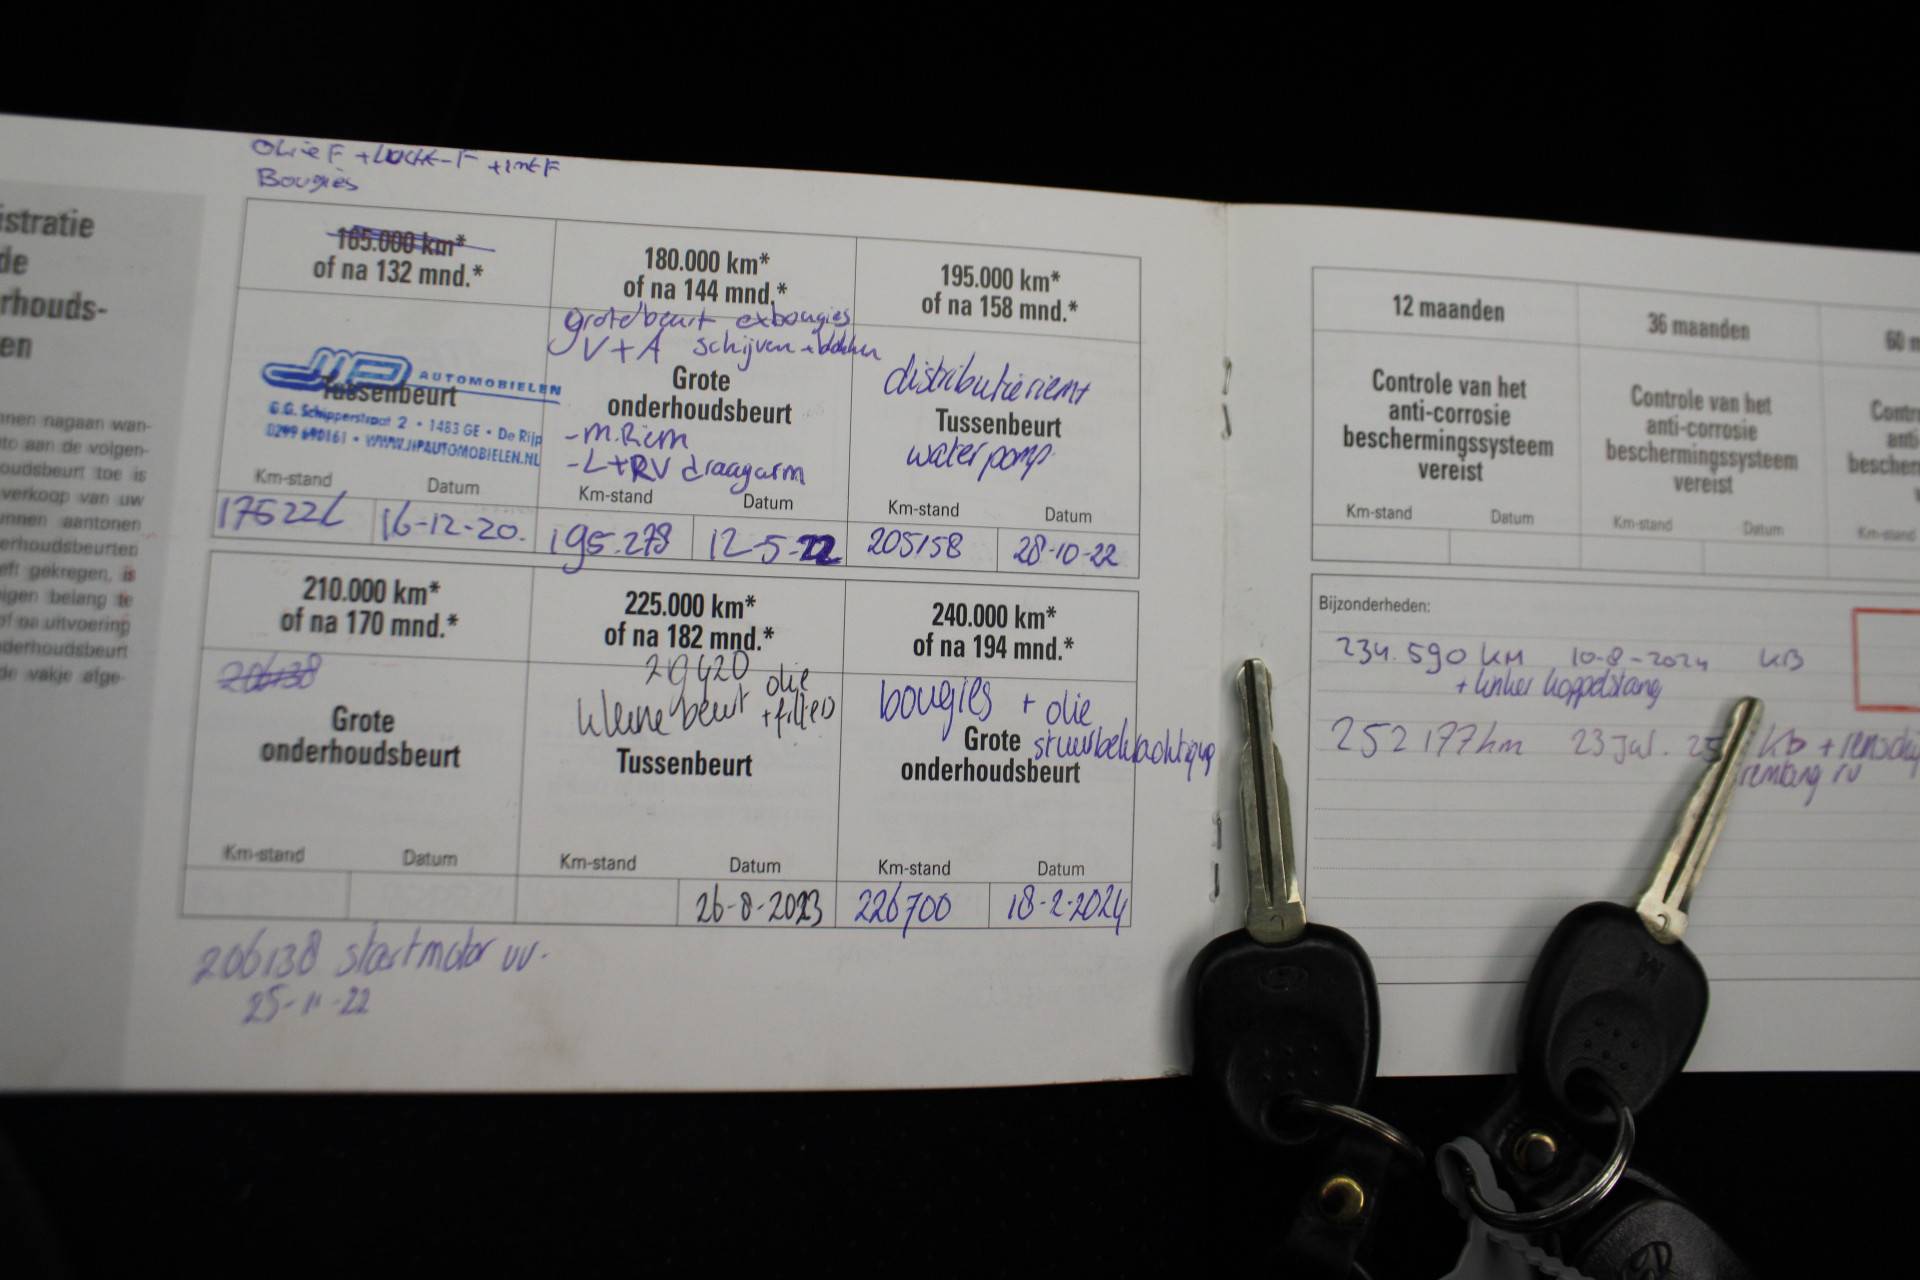 istratie
de
rhouds-
en
nnen nagaan wan-
to aan de volgen-
oudsbeurt toe is
verkoop van uw
nnen aantonen
erhoudsbeurten
eft gekregen, is
igen belang te
of na uitvoering
derhoudsbeurt
de vakje afge-
Olie F + lucht-F + int F
Bougies
165.000 km*
of na 132 mnd.*
AUTOMOBIELEN
Tussenbeurt
G.G. Schipperstraat 2 • 1483 GE • De Rijp
0299 690161 • WWW.JHPAUTOMOBIELEN.NL
Km-stand Datum
16-12-20.
180.000 km*
of na 144 mnd.*
grote beurt ex bougies
V+A schijven
Grote
onderhoudsbeurt
-M.Riem
-L+RV draagarm
Km-stand Datum
195.278 12-5-22
195.000 km*
of na 158 mnd.*
distributieriem
Tussenbeurt
waterpomp
Km-stand Datum
205158 28-10-22
210.000 km*
of na 170 mnd.*
206138
Grote
onderhoudsbeurt
Km-stand Datum
225.000 km*
of na 182 mnd.*
kleine beurt olie
+ filters
Tussenbeurt
Km-stand Datum
26-8-2023
240.000 km*
of na 194 mnd.*
bougies + olie
Grote
onderhoudsbeurt
Km-stand Datum
226700 18-2-2024
206138 startmotor vv.
25-11-22
12 maanden
Controle van het
anti-corrosie
beschermingssysteem
vereist
Km-stand Datum
36 maanden
Controle van het
anti-corrosie
beschermingssysteem
vereist
Km-stand Datum
60 m
Contro
anti
bescher
Km-stand
Bijzonderheden:
234.590 KM 10-8-2024 KB
+ linker koppelstang
252177 km 23 Jul. 25 kb + remschij
remtang rv